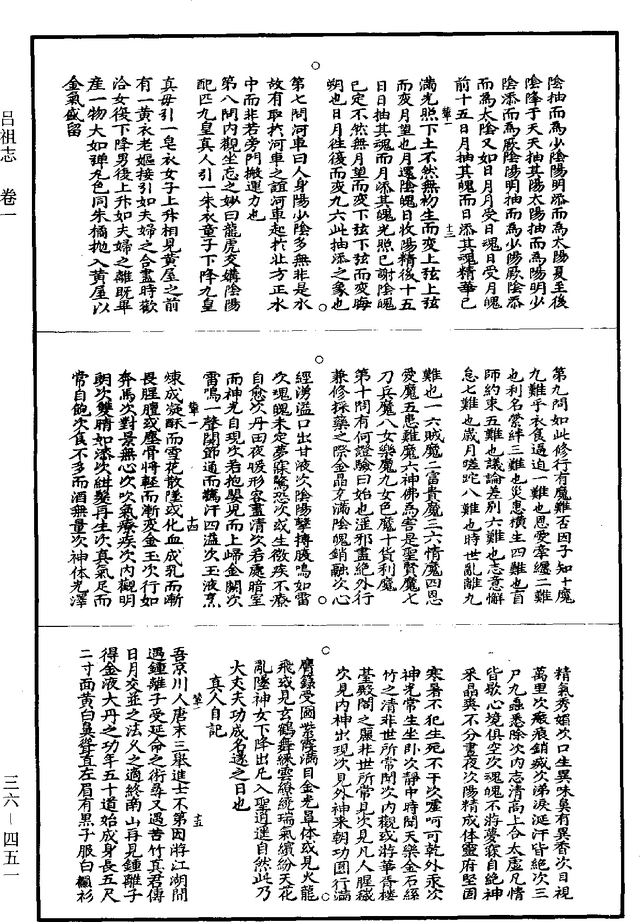 呂祖志　卷一
陰抽而爲少陰陽明添而爲太陽夏至後
陰降于天天抽其陽太陽抽而爲陽明少
陰添而爲厥陰陽明抽而爲少陽厥陰添
而爲太陰又如日月月受日魂日受月魄
前十五日月抽其魄而日添其魂精華已
滿光照下土不然無初生而變上弦上弦
而變月望也月還陰魄日收陽精後十五
日日抽其魂而月添其魄光照已謝陰魄
已定不然無月望而變下弦下弦而變晦
朔也日月往復而變九六此抽添之象也
第七問河車曰人身陽少陰多無非是水
故有取於河車之誼河車起於北方正水
中而非若旁門搬運力也
第八問内觀坐忘之妙曰龍虎交媾陰陽
配匹九皇真人引一朱衣童子下降九皇
真母引一皂衣女子上升相見黄屋之前
有一黄衣老嫗接引如夫婦之合盡時歡
洽女復下降男復上升如夫婦之離既畢
産一物大如彈丸色同朱橘抛入黄屋以
金氣盛留
第九問如此修行有魔難否因子知十魔
九難乎衣食逼迫一難也恩愛牽纏二難
也利名縈絆三難也災患横生四難也盲
師約束五難也議論差别六難也志意懈
怠七難也歲月蹉跎八難也時世亂離九
難也一六賊魔二富貴魔三六情魔四恩
愛魔五患難魔六神佛爲害是聖賢魔七
刀兵魔八女樂魔九女色魔十貨利魔
第十問有何證驗曰始也淫邪盡絶外行
兼修採藥之際金晶充滿陰魄銷融次心
經湧溢口出甘液次陰陽擊搏腹鳴如雷
次魂魄未定夢寐驚恐次或生微疾不療
自愈次丹田夜暖形容晝清次若處暗室
而神光自現次若抱嬰兒而上歸金闕次
雷鳴一聲關節通而驚汗四溢次玉液烹
煉成凝酥而雪花散墜或化血成乳而漸
畏腥膻或塵骨將輕而漸變金玉次行如
奔馬次對景無心次吹氣療疾次内觀明
朗次雙睛如漆次紺髮再生次真氣足而
常自飽次食不多而酒無量次神体光澤
精氣秀媚次口生異味臭有異香次目視
萬里次瘢痕銷滅次涕淚涎汗皆絶次三
尸九蟲悉除次内志清高上合太虚凡情
皆歇心境俱空次魂魄不將夢寐自絶神
采晶爽不分晝夜次陽精成体靈府堅固
寒暑不犯生死不干次嚏呵可乾外汞次
神光常生坐卧次静中時聞天樂金石絲
竹之清非世所常聞次内觀或將華胥樓
臺殿閣之麗非世所常見次見凡人腥穢
次見内神出現次見外神來朝功圓行滿
膺籙受圖紫霞滿目金光罩体或見火龍
飛或見玄鶴舞綵雲繚繞瑞氣繽紛天花
亂墜神女下降出凡入聖逍遥自然此乃
大丈夫功成名遂之日也
真人自記
吾京川人唐末三舉進士不第因游江湖間
遇鍾離子受延命之術尋又遇苦竹真君傳
日月交並之法久之適終南山再見鍾離子
得金液大丹之功年五十道始成身長五尺
二寸面黄白鼻聳直左眉有黑子服白襴衫
三六—四五一